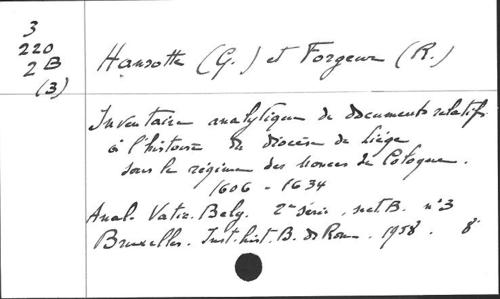 3
220
2 B
(3)
Hansotte (G.) et Forgeur (R.)
Inventaire analytique de documents relatifs
à l'histoire du diocèse de Liége
sous le régime des nonces de Cologne.
1606 - 1634
Anal. Vatic. Belg. 2e série, sect. B. n° 3
Bruxelles. Inst. hist. B. de Rome. 1958. 8°